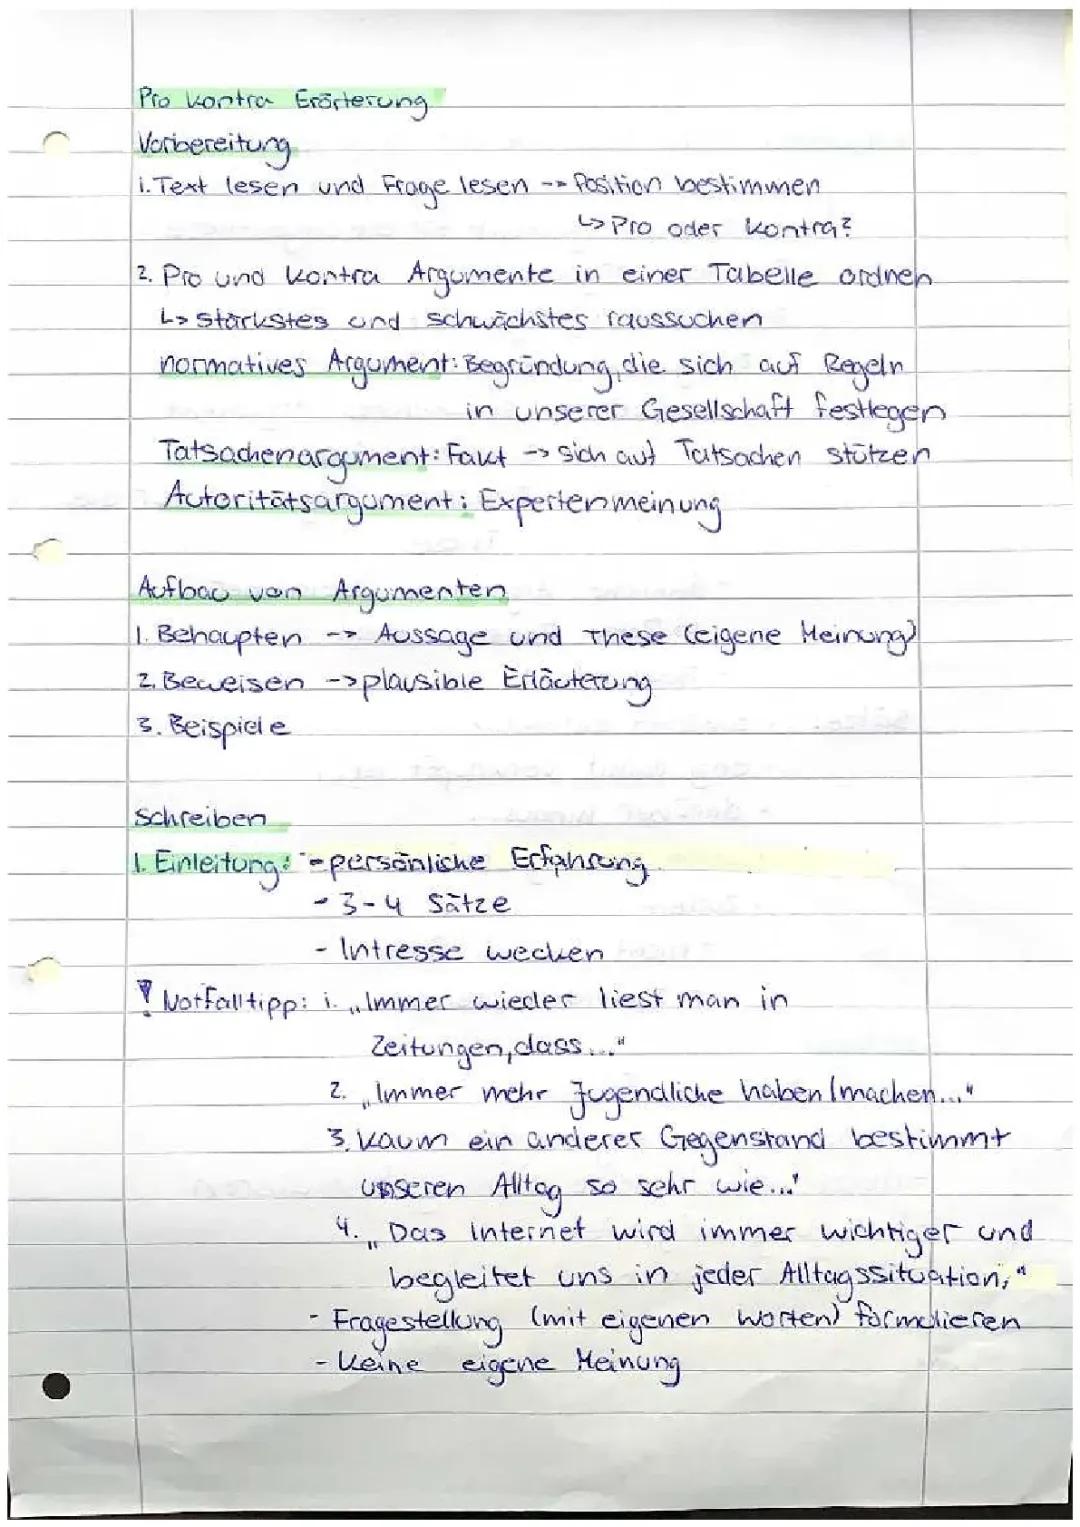 Pro Kontra Erörterung
Vorbereitung
1. Text lesen und Frage lesen --> Position bestimmen
↳ Pro oder Kontra?
2. Pro und Kontra Argumente in einer Tabelle ordnen
↳ stärkstes und schwächstes raussuchen
normatives Argument: Begründung, die sich auf Regeln
in unserer Gesellschaft festlegen
Tatsachenargument: Fakt -> sich auf Tatsachen stützen
Autoritätsargument: Expertenmeinung
Aufbau von Argumenten
1. Behaupten --> Aussage und These (eigene Meinung)
2. Beweisen -> plausible Erläuterung
3. Beispiele
Schreiben
1. Einleitung: - persönliche Erfahrung
- 3-4 Sätze
- Intresse wecken
! Notfalltipp: 1. „Immer wieder liest man in
Zeitungen, dass..."
2. „Immer mehr Jugendliche haben/machen..."
3. Kaum ein anderer Gegenstand bestimmt
unseren Alltag so sehr wie..."
4. „Das Internet wird immer wichtiger und
begleitet uns in jeder Alltagssituation,"
- Fragestellung (mit eigenen Worten) formulieren
- Keine eigene Meinung